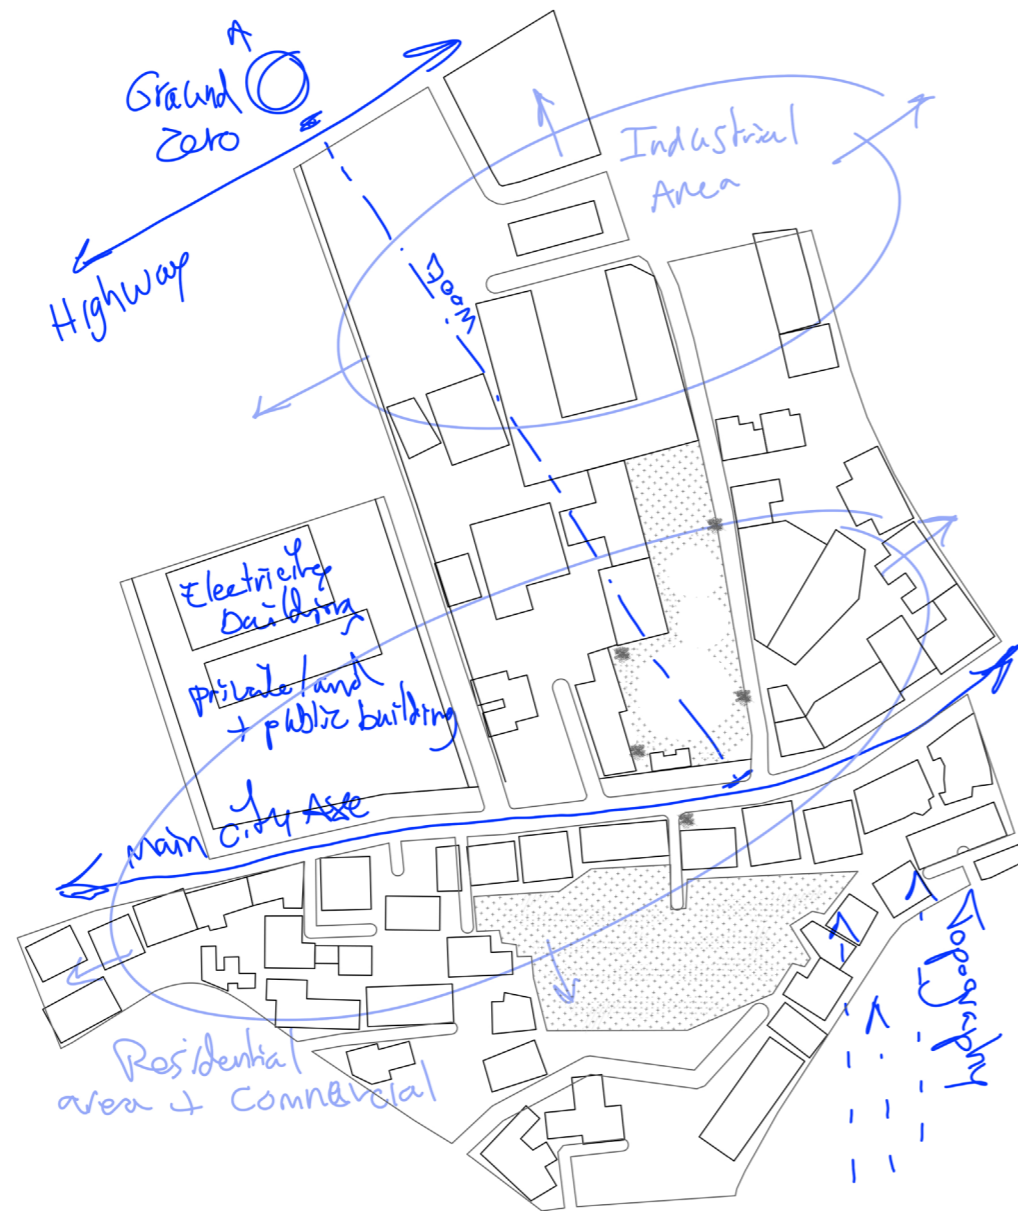 Ground
Zero
Highway
Industrial
Area
Electricity
building
private land
+ public building
Main City Axe
Topography
Residential
area + Commercial